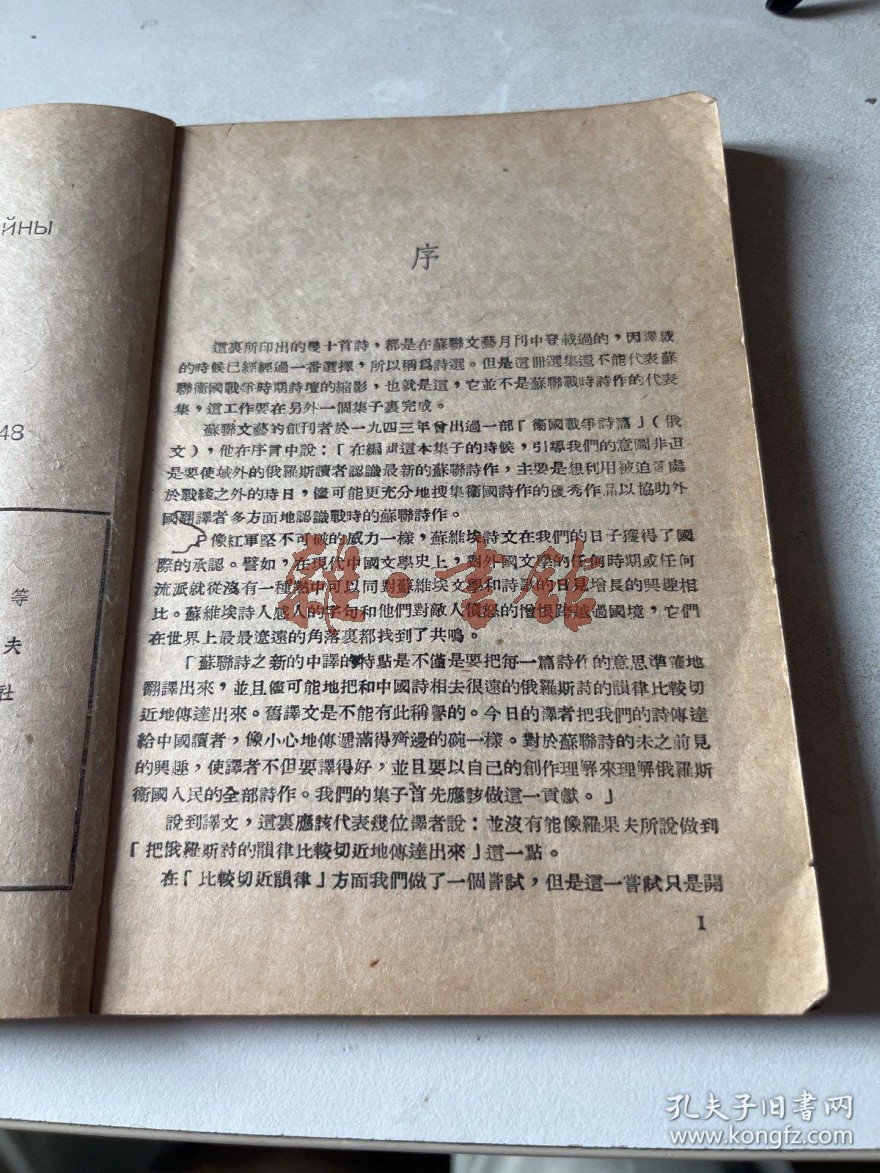 йны
48
等
夫
社
序
這裏所印出的幾十首詩，都是在蘇聯文藝月刊中登載過的，因譯載
的時候已經經過一番選擇，所以稱爲詩選。但是這冊選集還不能代表蘇
聯衞國戰爭時期詩壇的縮影，也就是這，它並不是蘇聯戰時詩作的代表
集，這工作要在另外一個集子裏完成。
蘇聯文藝的創刊者於一九四三年曾出過一部「衞國戰爭詩
（俄
文），他在序言中說：「在編輯這本集子的時候，引導我們的意圖非但
是要使域外的俄羅斯讀者認識最新的蘇聯詩作，主要是想利用被迫
處
於戰綫之外的時日，儘可能更充分地搜集衞國詩作的優秀作品以協助外
國翻譯者多方面地認識戰時的蘇聯詩作。
「像紅軍堅不可破的威力一樣，蘇維埃詩文在我們的日子獲得了國
際的承認。譬如，在現代中國文學史上，對外國文學的任何時期或任何
流派就從沒有一種熱中可以同對蘇維埃文學和詩歌的日見增長的興趣相
比。蘇維埃詩人感人的字句和他們對敵人憤怒的憎恨跨越過國境，它們
在世界上最最遼遠的角落裏都找到了共鳴。
「蘇聯詩之新的中譯的特點是不僅是要把每一篇詩作的意思準確地
翻譯出來，並且儘可能地把和中國詩相去很遠的俄羅斯詩的韻律比較切
近地傳達出來。舊譯文是不能有此稱譽的。今日的譯者把我們的詩傳達
給中國讀者，像小心地傳遞滿得齊邊的碗一樣。對於蘇聯詩的未之前見
的興趣，使譯者不但要譯得好，並且要以自己的創作理解來理解俄羅斯
衞國人民的全部詩作。我們的集子首先應該做這一貢獻。」
說到譯文，這裏應該代表幾位譯者說：並沒有能像羅果夫所說做到
「把俄羅斯詩的韻律比較切近地傳達出來」這一點。
在「比較切近韻律」方面我們做了一個嘗試，但是這一嘗試只是開
1
孔夫子旧书网
www.kongfz.com